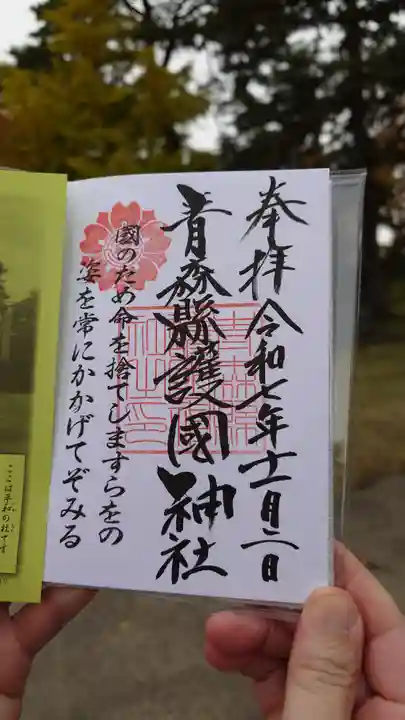 奉拝 令和七年十一月二日
青森縣護國神社
國のため命を捨てしますらをの
姿を常にかかげてぞみる
ここは平和の杜です